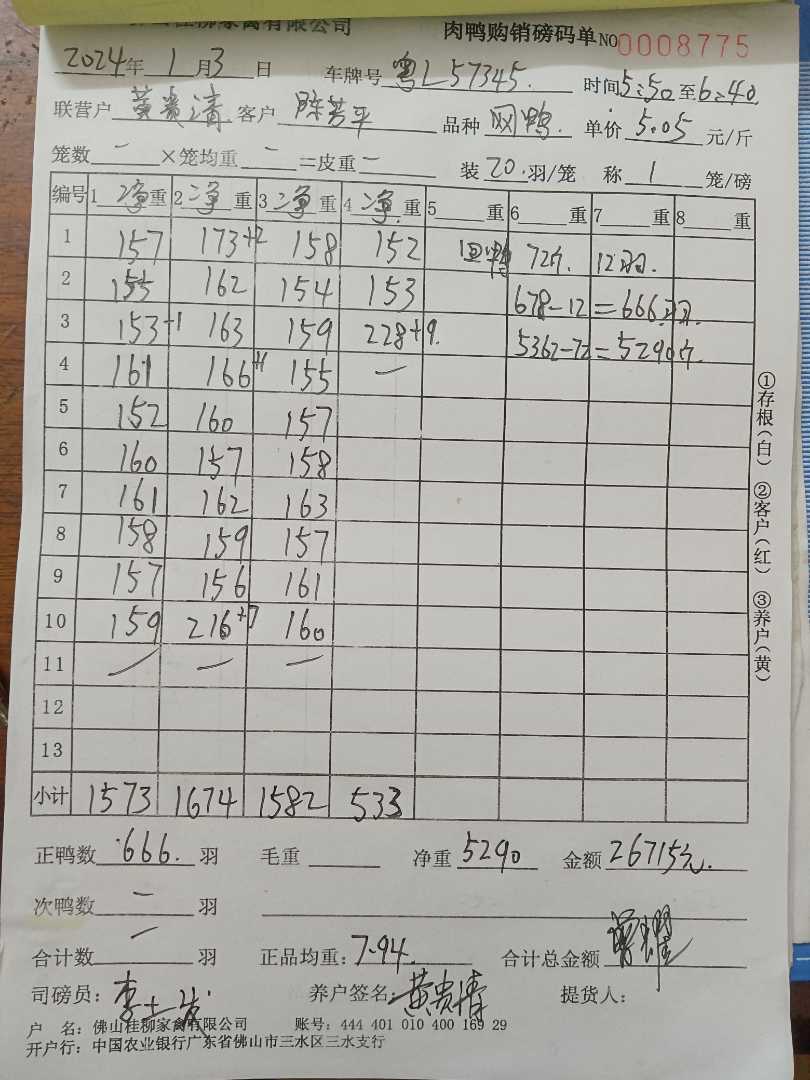 柳家禽有限公司 肉鸭购销磅码单 NO 0008775
2024年1月3日 车牌号 粤L57345. 时间5:50至6:40.
联营户 黄贵清. 客户 陈芳平 品种 网鸭. 单价 5.05 元/斤
笼数 一 ×笼均重 一 =皮重 一 装 20 羽/笼 称 1 笼/磅
编号 1 净重 2 净重 3 净重 4 净重 5 重 6 重 7 重 8 重
1 157 173+2 158 152 回鸭 72斤. 12羽.
2 155 162 154 153 678-12=666羽.
3 153+1 163 159 228+9. 5362-72=5290斤.
4 161 166+1 155 一
5 152 160 157
6 160 157 158
7 161 162 163
8 158 159 157
9 157 156 161
10 159 216+7 160
11 一 一 一
12
13
小计 1573 1674 1582 533
正鸭数 666. 羽 毛重 净重 5290 金额 26715元.
次鸭数 一 羽
合计数 一 羽 正品均重: 7.94. 合计总金额
司磅员: 李士发 养户签名: 黄贵清 提货人:
户 名: 佛山桂柳家禽有限公司 账号: 444 401 010 400 169 29
开户行: 中国农业银行广东省佛山市三水区三水支行
①存根(白) ②客户(红) ③养户(黄)